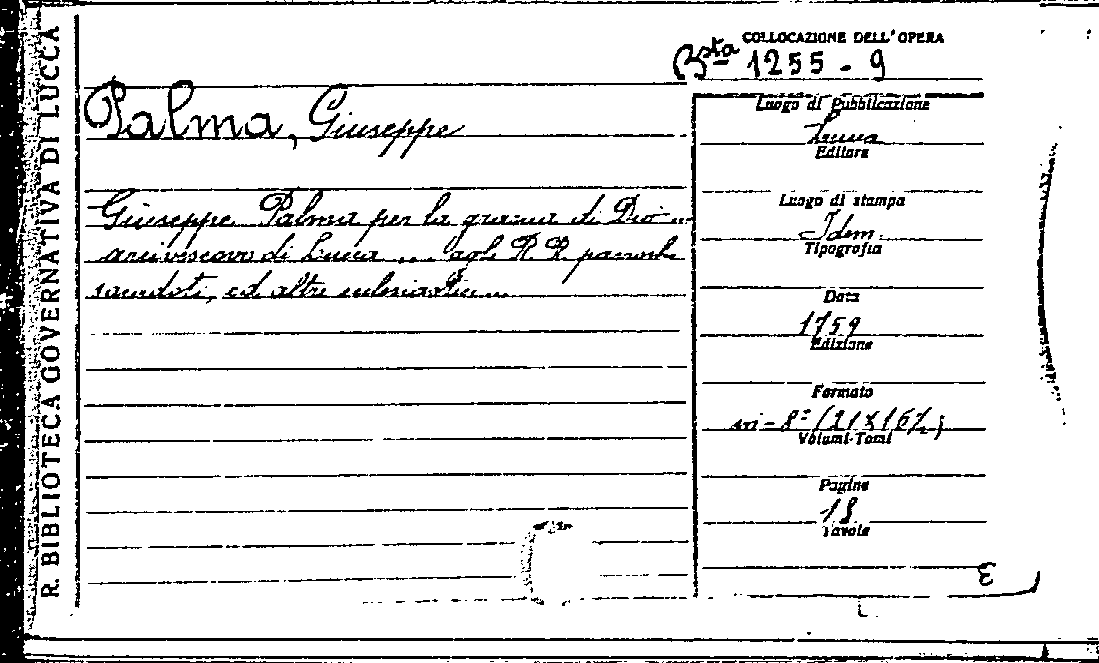 R. BIBLIOTECA GOVERNATIVA DI LUCCA
COLLOCAZIONE DELL'OPERA
Bsta 1255 - 9
Palma, Giuseppe
Giuseppe Palma per la grazia di Dio ...
arcivescovo di Lucca ... agli R R parrochi
sacerdoti, ed altri ecclesiastici ...
Luogo di Pubblicazione
Lucca
Editore
Luogo di stampa
Idem.
Tipografia
Data
1759
Edizione
Formato
in-8° (21 X 16½)
Volumi-Tomi
Pagine
18
Tavole